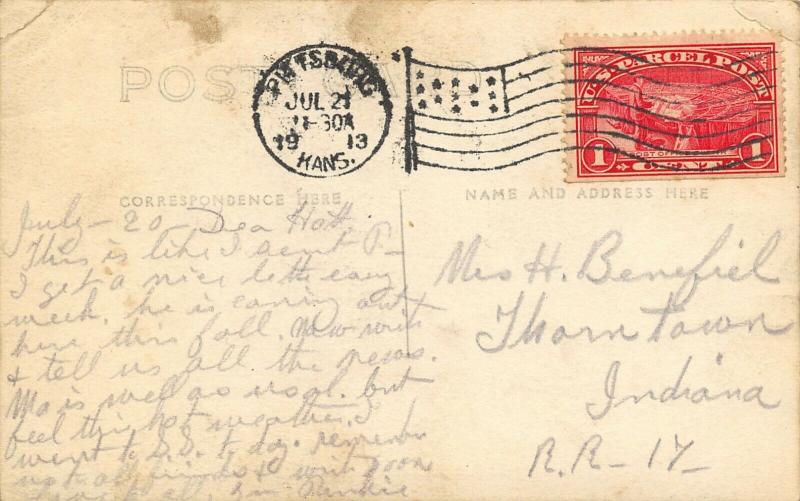 POST CARD
PITTSBURG
JUL 21
11-30A
1913
KANS.
U.S. PARCEL POST
POST OFFICE
1 CENT 1
CORRESPONDENCE HERE
NAME AND ADDRESS HERE
July-20- Dea Hatt.
This is like I sent P-
I get a nice lett eavy
week. he is coming out
here this fall. Now writ
& tell us all the news.
Ma is well as usal. but
feel this hot weather. I
went to S.S. to day. remember
us to all friends & writ soon
love to all,
Mrs H. Benefiel
Thorntown
Indiana
R.R-17-